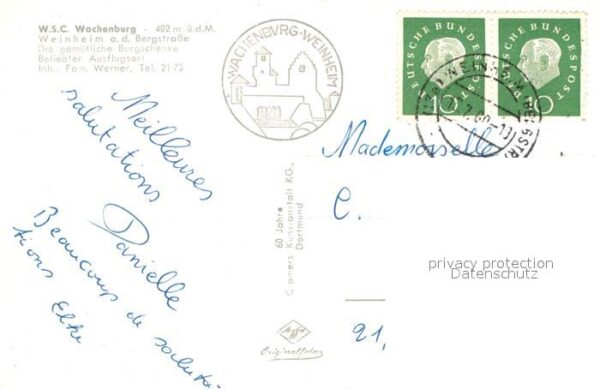 W.S.C. Wachenburg - 402 m ü.d.M.
Weinheim a.d. Bergstraße
Die gemütliche Burgschenke
Beliebter Ausflugsort
Inh.: Fam. Werner, Tel. 21 73
WACHENBURG-WEINHEIM
DEUTSCHE BUNDESPOST
10
DEUTSCHE BUNDESPOST
WEINHEIM
Meilleures
salutations
Danielle
Beaucoup de saluta-
tions Elke
60 Jahre
Cramers Kunstanstalt KG.,
Dortmund
Agfa
Originalfoto
Mademoiselle
C.
21,
privacy protection
Datenschutz